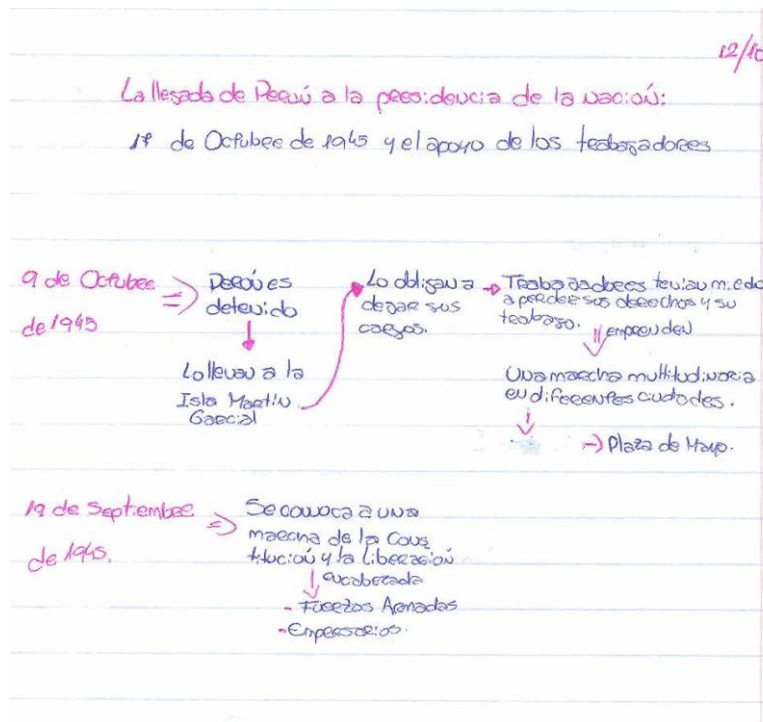 12/10
La llegada de Perón a la presidencia de la nación:
17 de Octubre de 1945 y el apoyo de los trabajadores
9 de Octubre
de 1945
=> Perón es
detenido
Lo llevan a la
Isla Martín
García
Lo obligan a
dejar sus
cargos.
→ Trabajadores tenían miedo
a perder sus derechos y su
trabajo.
emprenden
Una marcha multitudinaria
en diferentes ciudades.
→ Plaza de Mayo.
19 de Septiembre
de 1945.
=> Se convoca a una
marcha de la Cons
titución y la liberación
encabezada
- Fuerzas Armadas
- Empresarios.